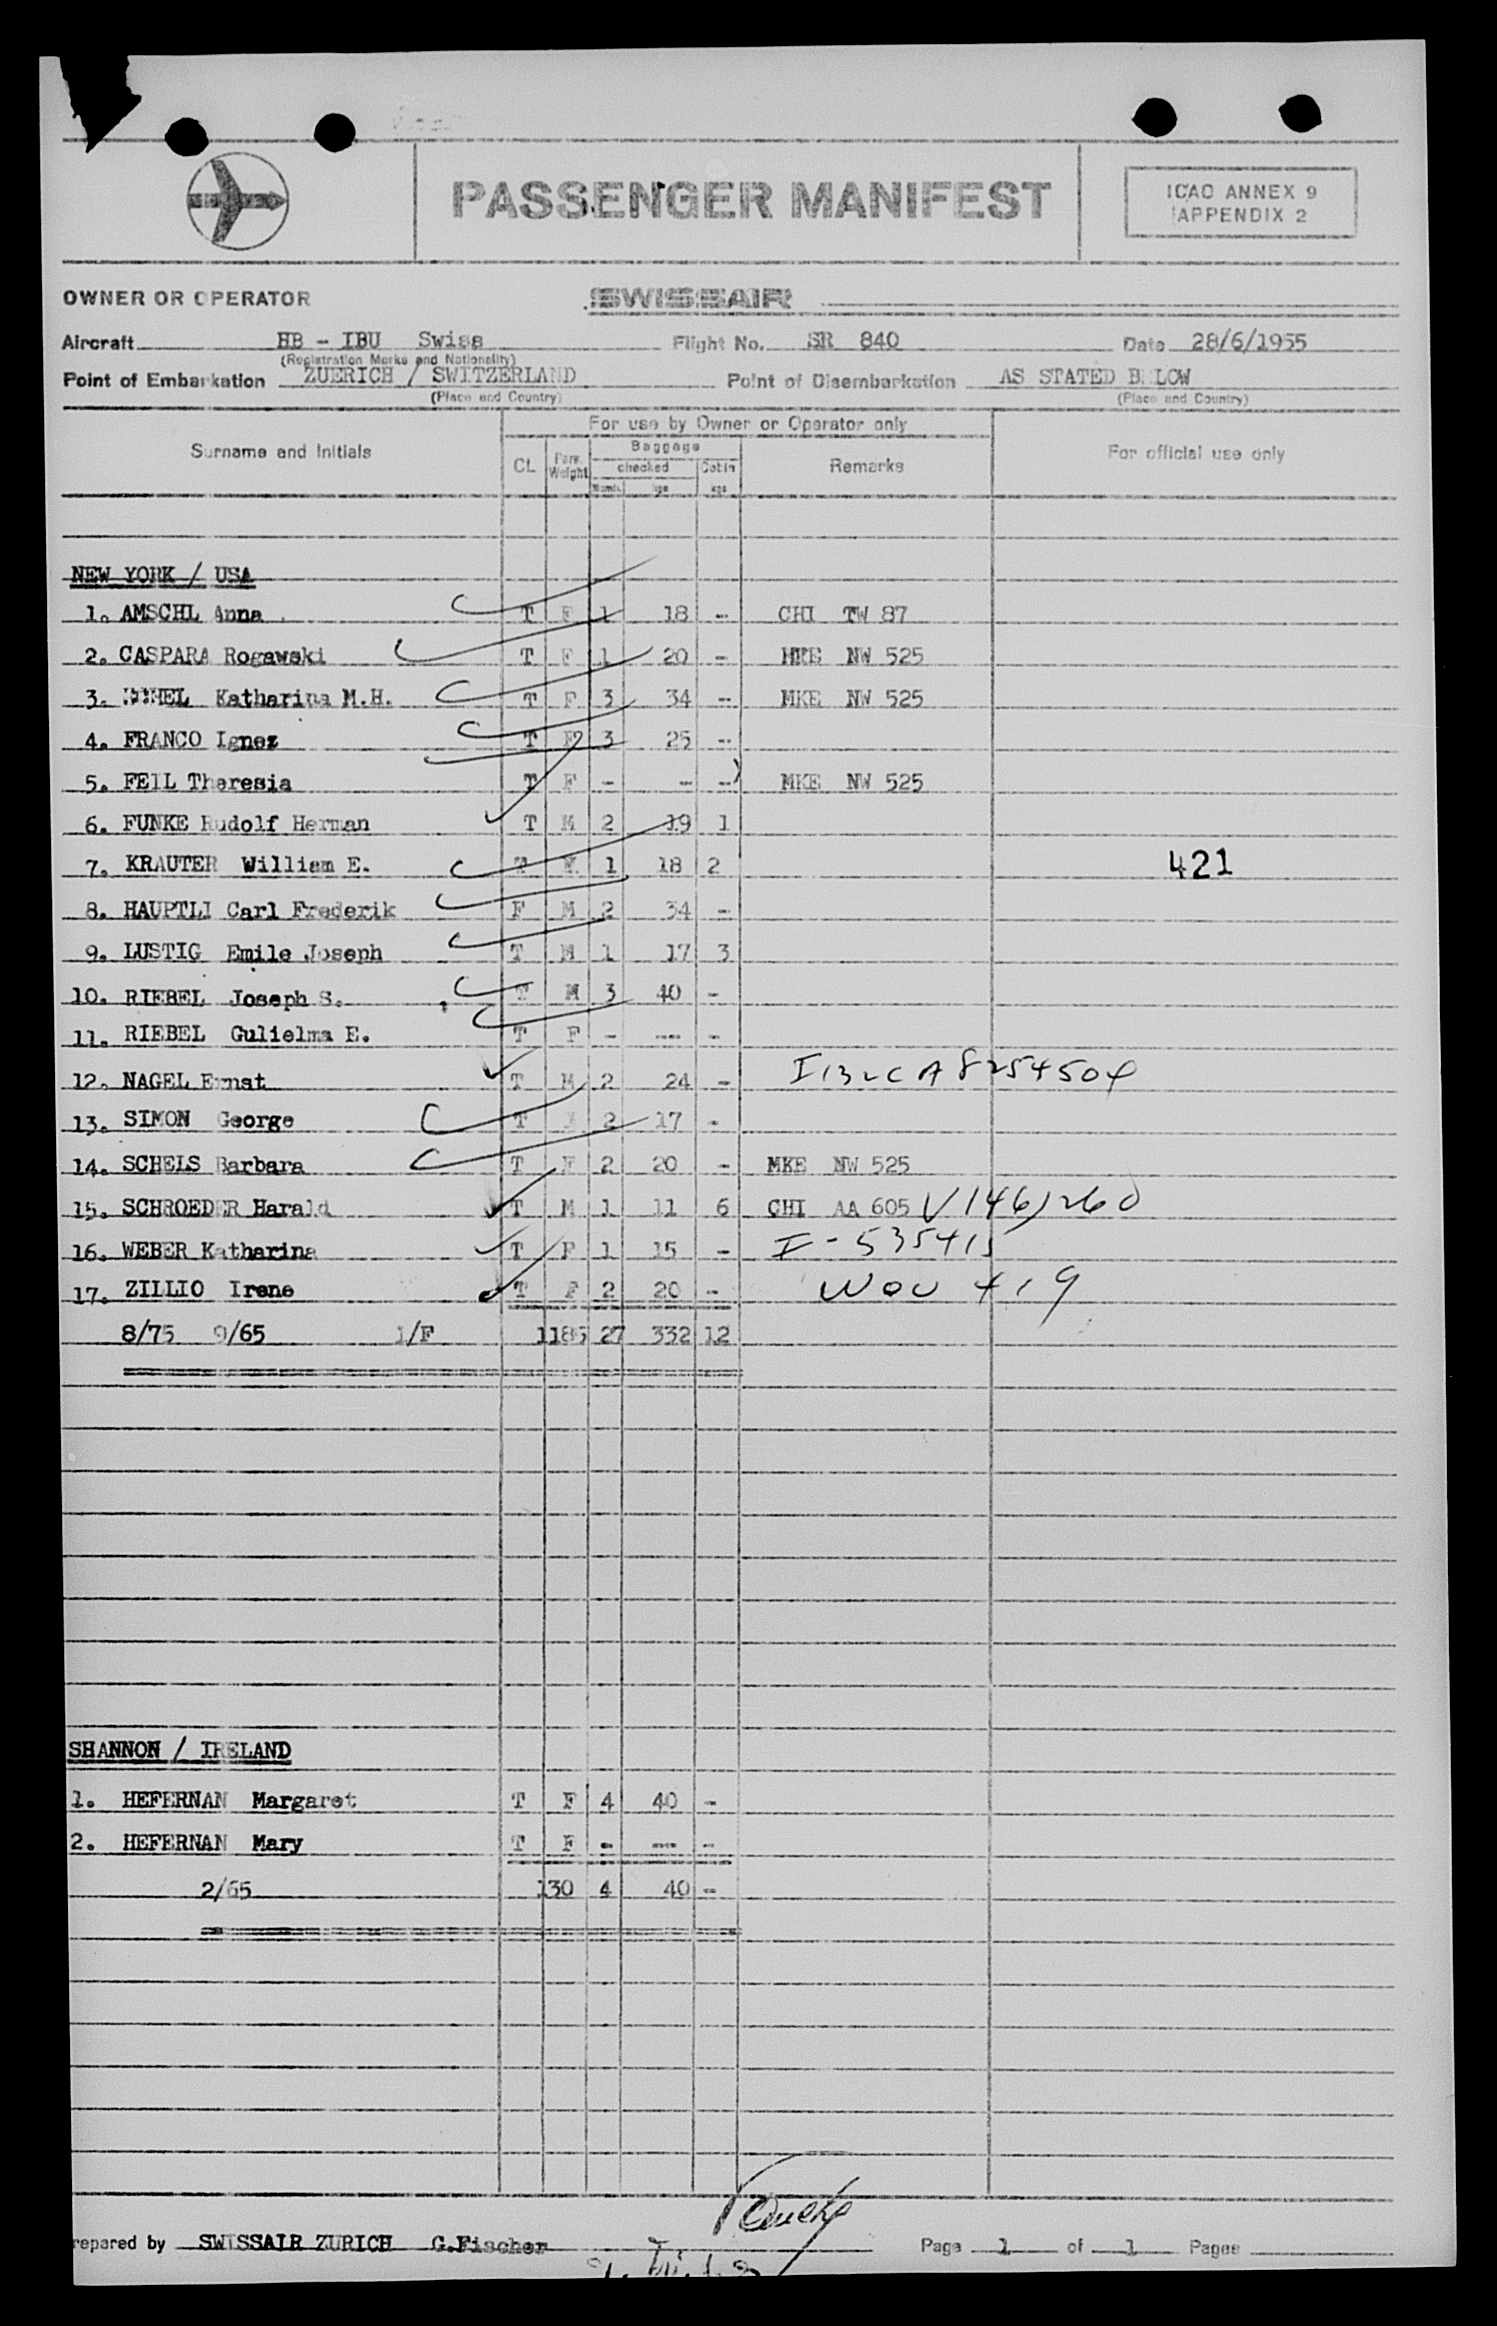 PASSENGER MANIFEST
ICAO ANNEX 9
APPENDIX 2
OWNER OR OPERATOR SWISSAIR
Aircraft HB - IBU Swiss Flight No. SR 840 Date 28/6/1955
(Registration Marks and Nationality)
Point of Embarkation ZUERICH / SWITZERLAND Point of Disembarkation AS STATED BELOW
(Place and Country) (Place and Country)
For use by Owner or Operator only
Surname and Initials CL Pers. Weight Baggage Remarks For official use only
checked Cabin
Numb. kgs kgs
NEW YORK / USA
1. AMSCHL Anna T F 1 18 - CHI TW 87
2. CASPARA Rogawski T F 1 20 - MKE NW 525
3. Katharina M.H. T F 3 34 - MKE NW 525
4. FRANCO Ignez T F 3 25 -
5. FEIL Theresia T F - - - MKE NW 525
6. FUNKE Rudolf Herman T M 2 19 1
7. KRAUTER William E. T M 1 18 2 421
8. HAUPTLI Carl Frederik F M 2 34 -
9. LUSTIG Emile Joseph T M 1 17 3
10. RIEBEL Joseph S. T M 3 40 -
11. RIEBEL Gulielma E. T F - --- -
12. NAGEL Ernst T M 2 24 -
13. SIMON George T 2 17 -
14. SCHELS Barbara T F 2 20 - MKE NW 525
15. SCHROEDER Harald T M 1 11 6 CHI AA 605
16. WEBER Katharina T F 1 15 - I - 535415
17. ZILLIO Irene T F 2 20 - WOU 419
8/75 9/65 1/F 1185 27 332 12
SHANNON / IRELAND
1. HEFERNAN Margaret T F 4 40 -
2. HEFERNAN Mary T F - --- -
2/65 130 4 40 -
repared by SWISSAIR ZURICH G.Fischer Page 1 of 1 Pages